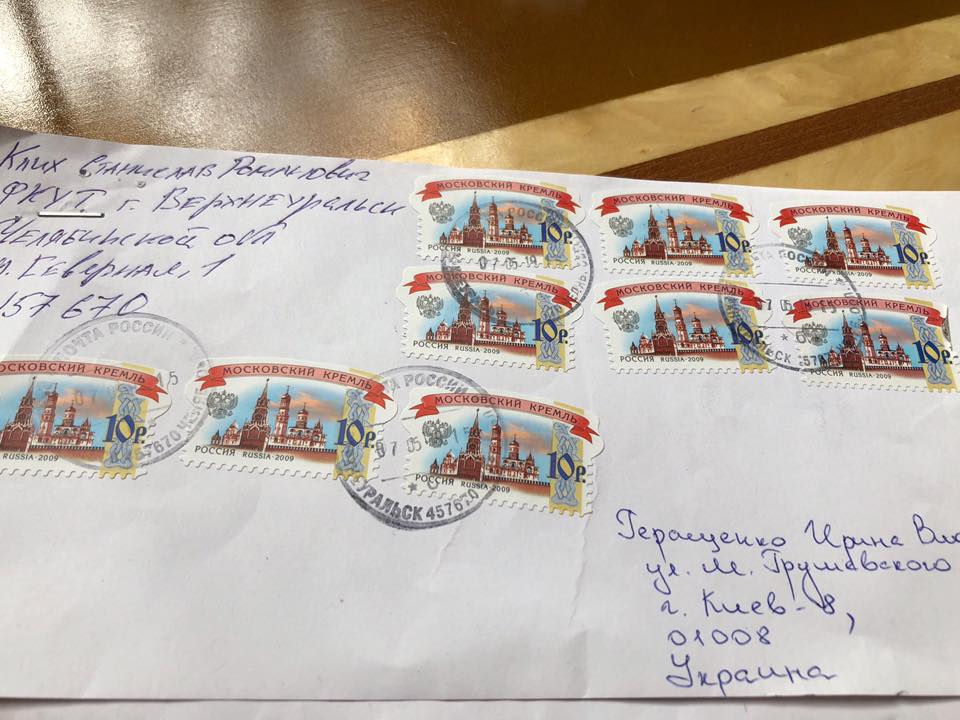 Клих Станислав Романович
ФКУТ г. Верхнеуральск
Челябинской обл
Северная, 1
57670
МОСКОВСКИЙ КРЕМЛЬ
10 р.
РОССИЯ RUSSIA·2009
07 05
МОСКОВСКИЙ КРЕМЛЬ
10 р.
РОССИЯ RUSSIA·2009
МОСКОВСКИЙ КРЕМЛЬ
10 р.
РОССИЯ RUSSIA·2009
МОСКОВСКИЙ КРЕМЛЬ
10 р.
РОССИЯ RUSSIA·2009
МОСКОВСКИЙ КРЕМЛЬ
10 р.
РОССИЯ RUSSIA·2009
МОСКОВСКИЙ КРЕМЛЬ
10 р.
РОССИЯ RUSSIA·2009
ПОЧТА РОССИИ
МОСКОВСКИЙ КРЕМЛЬ
10 р.
РОССИЯ RUSSIA·2009
МОСКОВСКИЙ КРЕМЛЬ
10 р.
РОССИЯ RUSSIA·2009
МОСКОВСКИЙ КРЕМЛЬ
10 р.
РОССИЯ RUSSIA·2009
РОССИИ
07 05
УРАЛЬСК 457670
Геращенко Ирина Вла
ул. М. Грушевского
г. Киев-8,
01008
Украина